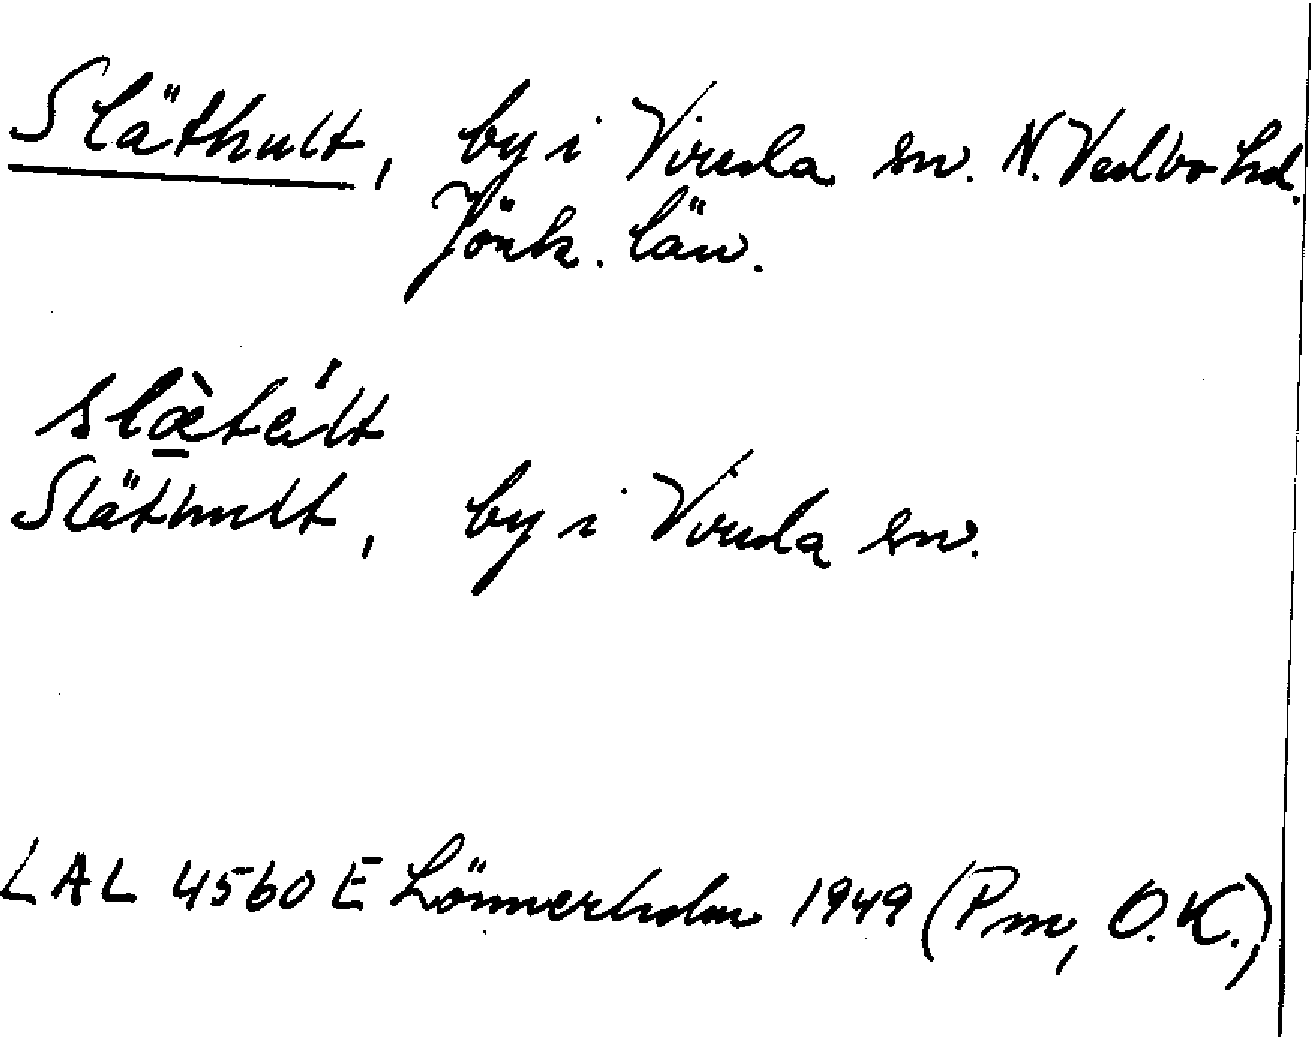 Släthult, by i Vireda sn. N. Vedbo hd.
Jönk. län.
slæ̀tált
Släthult, by i Vireda sn.
LAL 4560 E Lönnerholm 1949 (Pm, O.K.)